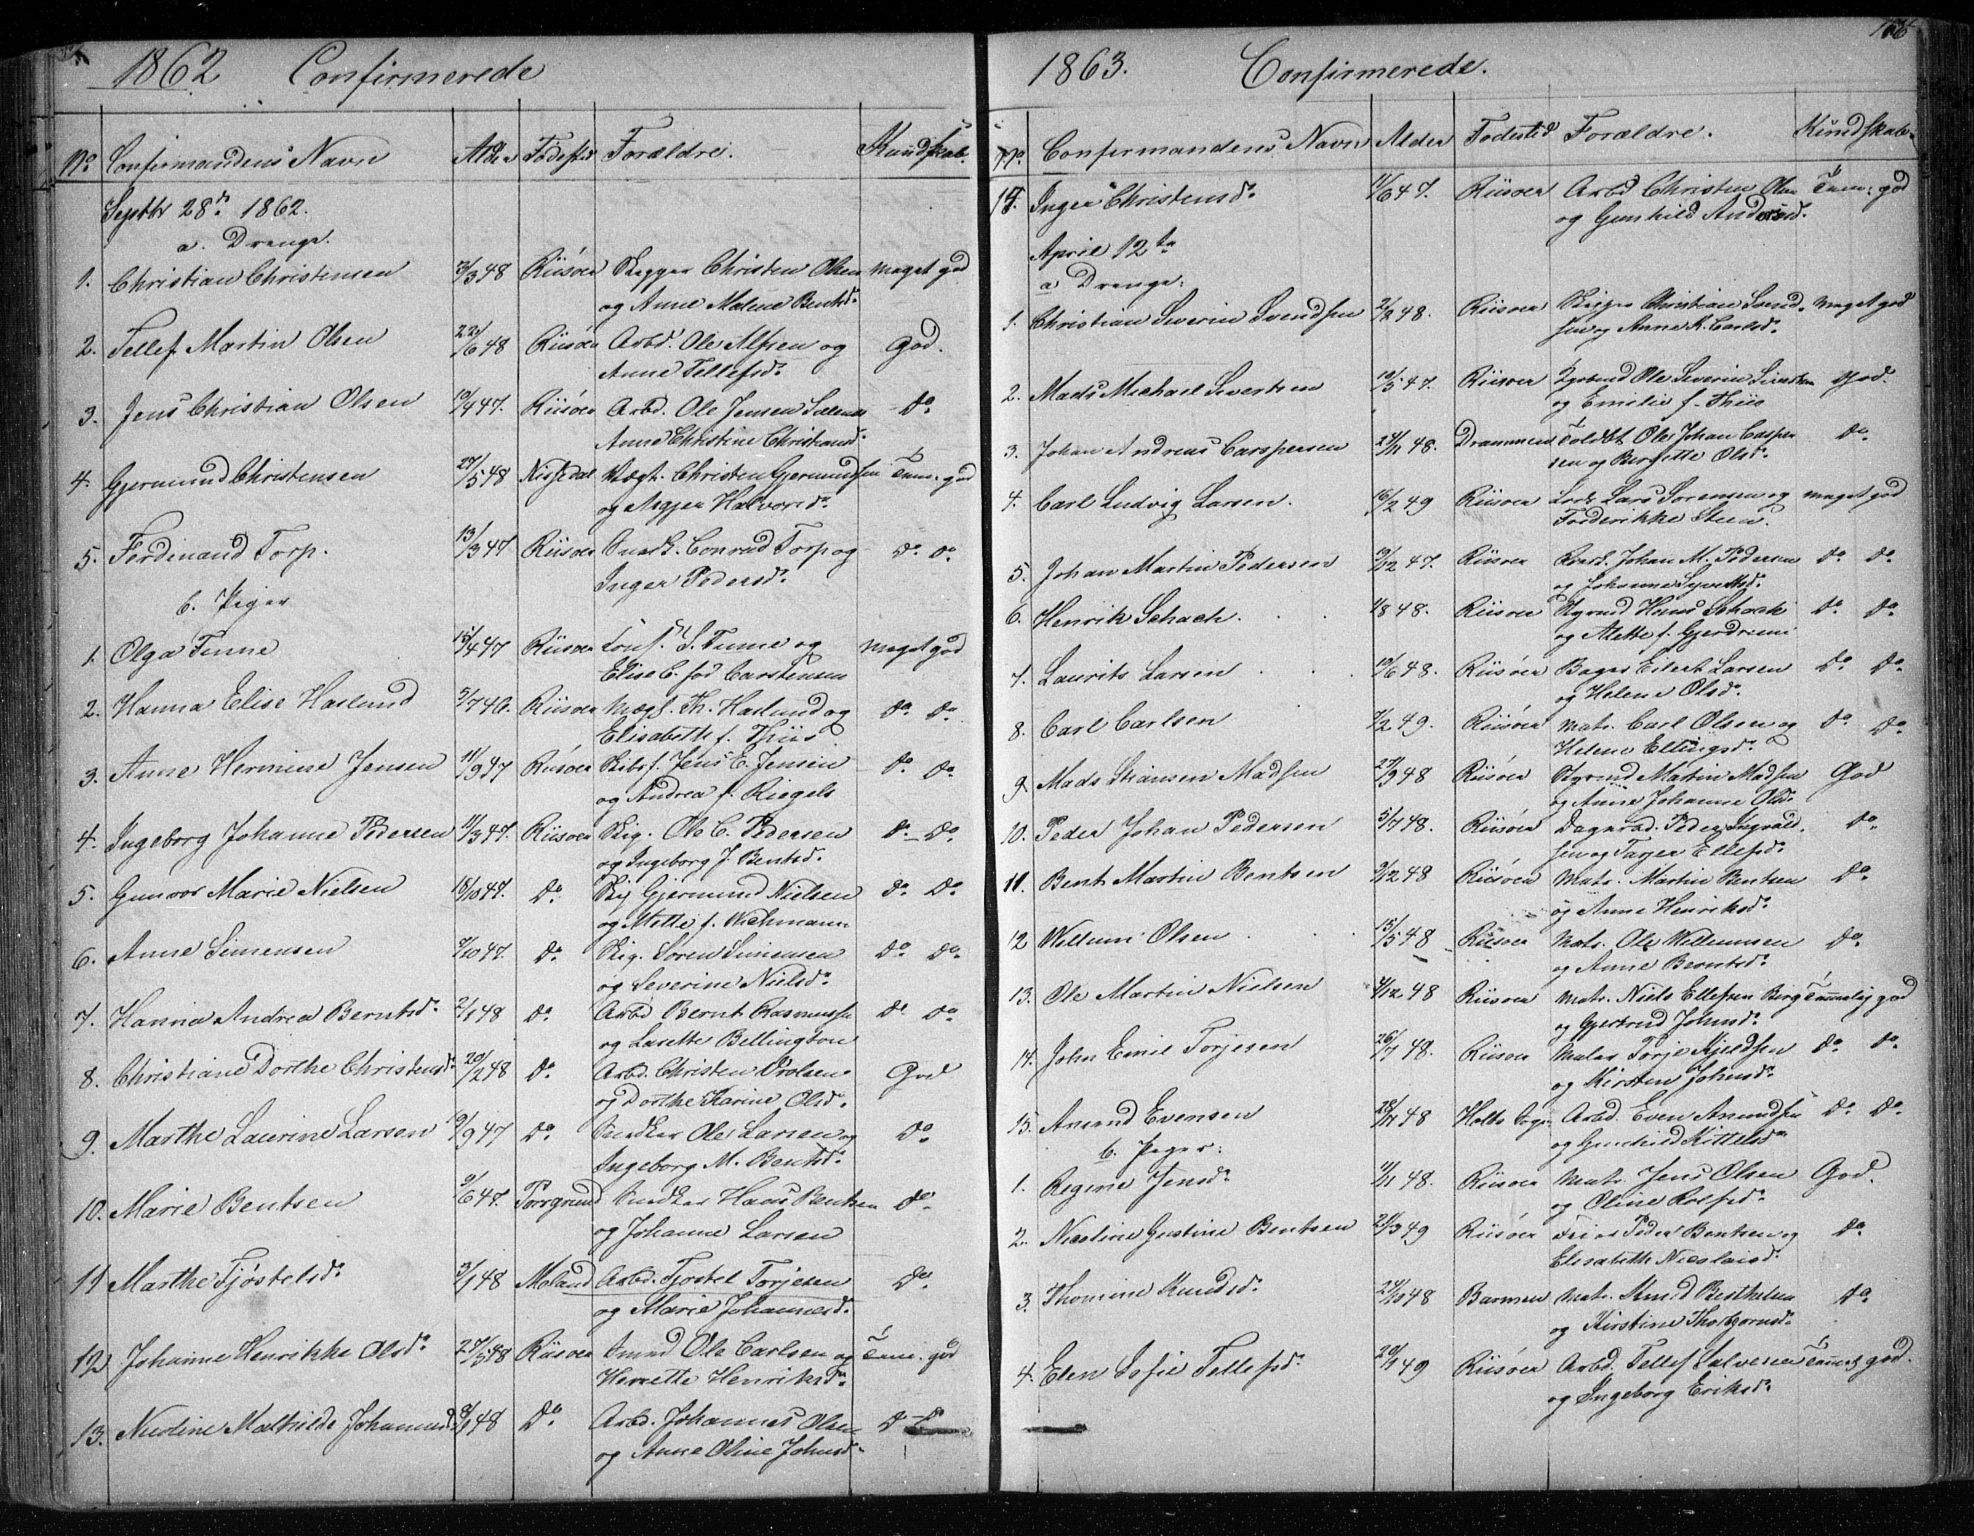 1862 Confirmerede
No Confirmandens Navn Alder Fødested Forældre. Kundskab.
Septbr 28de 1862.
a. Drenge.
1. Christian Christensen 3/3 48 Riisøer Skipper Christen Olsen meget god
og Anne Malene Bentsd.
2. Tellef Martin Olsen 22/6 48 Riisøer Arbd. Ole Alfsen og God.
Anne Tellefsd.
3. Jens Christian Olsen 10/4 47. Riisøer Arbd. Ole Jensen Do
Anne Christine Christiansd.
4. Gjermund Christensen 27/5 48 Nissedal Vægt. Christen Gjermundsen Tem. god
og Asgjer Halvorsd.
5. Ferdinand Torp. 13/3 47 Riisøer Snedk. Conrad Torp og Do Do
Inger Pedersd.
b. Piger
1. Olga Finne 15/4 47 Riisøer Cons. S. Finne og meget god
Elise C. fød Carstensen
2. Hanna Elise Haslund 5/7 48. Riisøer Mægl. Th. Haslund og Do Do
Elisabeth f. Thiis
3. Anne Hermine Jensen 11/9 47 Riisøer Skibsf. Jens E. Jensen Do Do
og Andrea f. Riegels
4. Ingeborg Johanne Pedersen 11/3 47. Riisøer Skip. Ole C. Pedersen Do Do
og Ingeborg J. Bentsd.
5. Gunvor Marie Nielsen 16/10 47. Do Skip Gjermund Nielsen Do Do
og Mette f. Wichmann
6. Anne Simensen 7/10 47. Do Skip. Søren Simensen Do Do
og Severine Nielsd.
7. Hanna Andrea Berntsd. 2/1 48 Do Arbd Bernt Rasmussen Do Do
og Lasette Bellington
8. Christiane Dorthe Christensd. 20/2 48 Do Arbd. Christen Orolsen God
og Dorthe Karine Olsd.
9. Marthe Laurine Larsen 9/9 47 Do Snedker Ole Larsen og Do
Ingeborg M. Bentsd.
10. Marie Bentsen 9/6 47. Porsgrund Snedker Hans Bentsen Do
og Johanne Larsen
11 Marthe Tjøstelsd. 3/1 48 Moland Arbd. Tjøstel Torjesen Do
og Marie Johannesd.
12. Johanne Henrikke Olsd. 24/3 48 Riisøer Smed Ole Carlsen og Tem. god
Henrette Henriksd.
13. Nicoline Mathilde Johannesd. 8/1 48 Do Arbd. Johannes Olsen Do Do
og Anne Oline Johnsd.
166
1863. Confirmerede.
No. Confirmandens Navn Alder Fødested Forældre. Kundskab.
14. Inger Christensd. 11/6 47. Riisøer Arbd Christen Olsen Tem. god
og Gunhild Andersd.
April 12te
a Drenge:
1. Christian Severin Svendsen 2/2 48. Riisøer Skipper Christian Svend- meget god
sen og Anne K. Carlsd.
2. Mads Michael Sivertsen 10/5 47. Riisøer Styrmd Ole Severin Sivertsen God.
og Emilie f. Thiis
3. Johan Andreas Caspersen 24/11 48. Drammen Toldbt Ole Johan Casper Do
sen og Bergitte Olsd.
4. Carl Ludvig Larsen. 16/2 49 Riisøer Lods Lars Sørensen og meget god
Frederikke Steen.
5. Johan Martin Pedersen 9/12 47. Riisøer Arbd. Johan M. Pedersen Do Do
og Johanne Syvertsd.
6. Henrik Schach. 1/8 48. Riisøer Styrmd Hans Schach Do Do
og Alette f. Gjerdrum
7. Laurits Larsen 19/6 48. Riisøer Bager Eilert Larsen Do Do
og Helene Olsd.
8. Carl Carlsen 7/2 49. Riisøer Matr. Carl Olsen og Do Do
Helene Ellingsd.
9. Mads Stiansen Madsen 27/9 48 Riisøer Styrmd Martin Madsen God
og Anne Johanne Olsd.
10. Peder Johan Pedersen 5/7 48. Riisøer Dagarbd. Peder Ingvald- Do
sen og Tarjer Ellefsd.
11. Bent Martin Bentsen 9/12 48 Riisøer Matr. Martin Bentsen Do
og Anne Henriksd.
12 Wellum Olsen 15/5 48 Riisøer Matr. Ole Wellumsen Do
og Anne Berntsd.
13. Ole Martin Nielsen 4/12 48 Riisøer Matr. Niels Ellefsen Berg Temmelig god
og Gjertrud Johnsd.
14. John Emil Torjesen 26/7 48. Riisøer Maler Torje Kjeldsen Do Do
og Kirsten Johnsd.
15. Amund Evensen 28/11 48 Holts Sogn Arbd. Even Amundsen Do Do
og Gunhild Kittelsd.
b. Piger:
1. Regine Jensd. 11/11 48. Riisøer Matr. Jens Olsen God.
og Oline Rolfsd.
2. Nicoline Gustine Bentsen 21/3 49 Riisøer Peder Bentsen og Do
Elisabeth Nicolaisd.
3. Thomine Knudsd. 24/10 48 Barmen Matr. Knud Berthelsen Do
og Kirstine Thorbjørnsd.
4. Elen Sofie Tellefsd. 20/1 49 Riisøer Arbd. Tellef Salvesen Temmel. god.
og Ingeborg Eriksd.